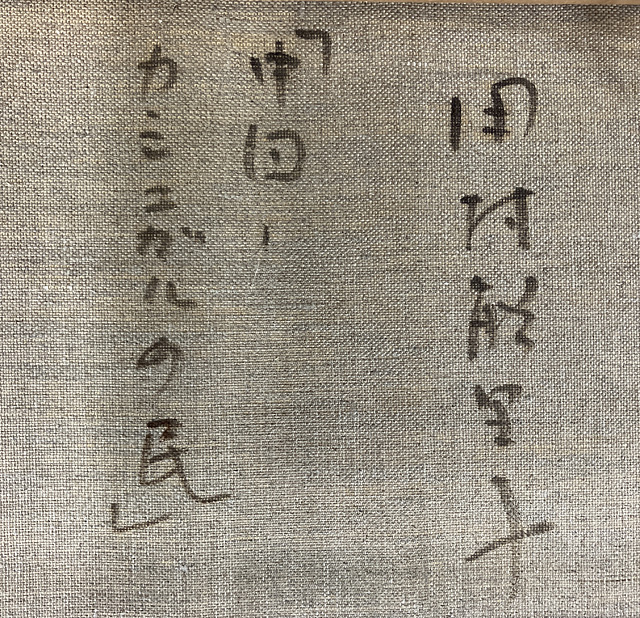 田村能里子
「中国・
カシュガルの民」